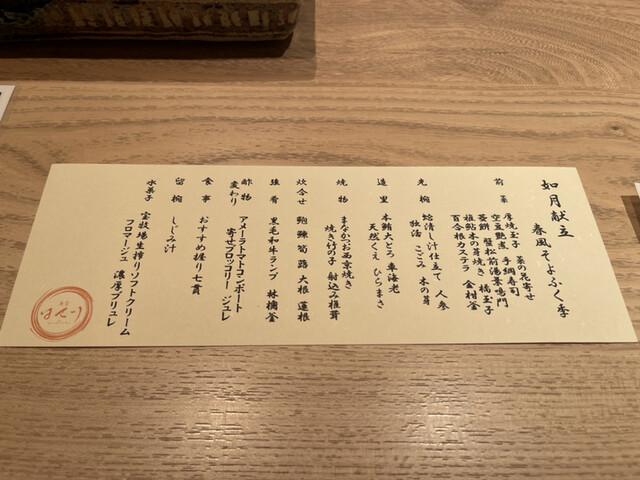 如月献立
春風そよふく季
前菜
厚焼玉子 菜の花寄せ
空豆艶煮 手綱寿司
蚕餅 蟹松前湯葉鳴門
稚鮎木の芽焼き 橘玉子
百合根カステラ 金柑釜
先椀
蛤清し汁仕立て 人参
独活 こごみ 木の芽
造里
本鮪大とろ 車海老
天然くえ ひらまさ
焼物
まなかつお西京焼き
焼き竹の子 射込み椎茸
炊合せ
鮑 鰊 筍 蕗 大根 蓮根
強肴
黒毛和牛ランプ 林檎釜
酢物変わり
アメーラトマトコンポート
寄せブロッコリー ジュレ
食事
おすすめ握り七貫
留椀
しじみ汁
水菓子
宝牧場生搾りソフトクリーム
フロマージュ 濃厚ブリュレ